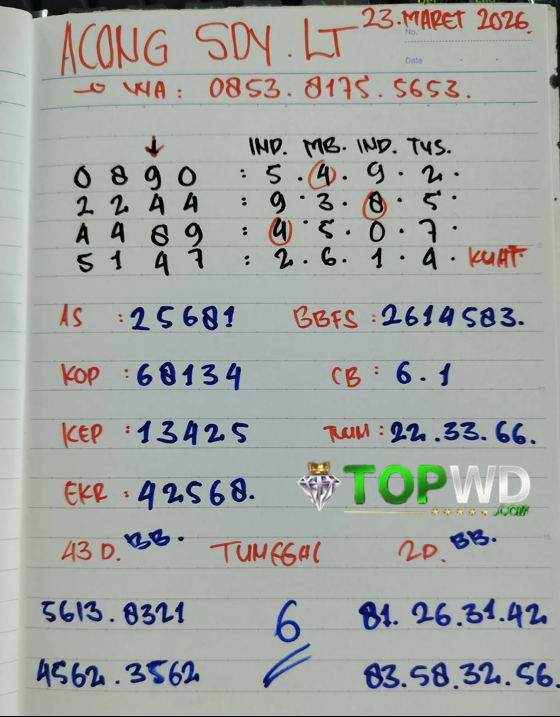 23. MARET 2026.
No.
Date
ACONG SDY. LT
→ WA : 0853. 8175. 5653.
IND. MB. IND. TYS.
0 8 9 0 : 5 . 4 . 9 . 2 .
2 2 4 4 : 9 . 3 . 8 . 5 .
4 4 8 9 : 4 . 5 . 0 . 7 .
5 1 4 7 : 2 . 6 . 1 . 4 . KUAT.
AS : 25681 BBFS : 2614583.
KOP : 68134 CB : 6 . 1
KEP : 13425 TWM : 22 . 33 . 66.
EKR : 42568.
TOPWD
.COM
43 D. BB. TUNGGAL 2D. BB.
5613 . 8321 6 81. 26.31.42.
4562 . 3562 83.58.32.56.